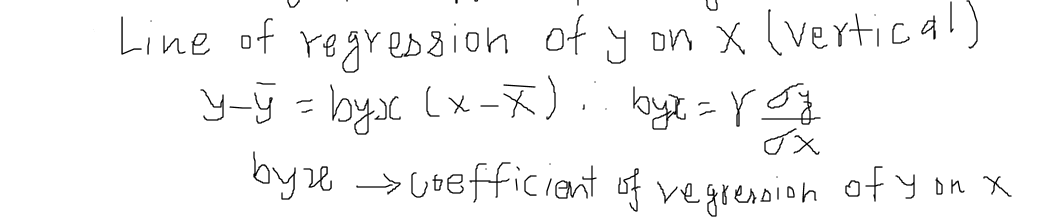 Line of regression of y on x (vertical)
y-ȳ = byx (x-x̄) . . byx = r σy/σx
byx → coefficient of regression of y on x